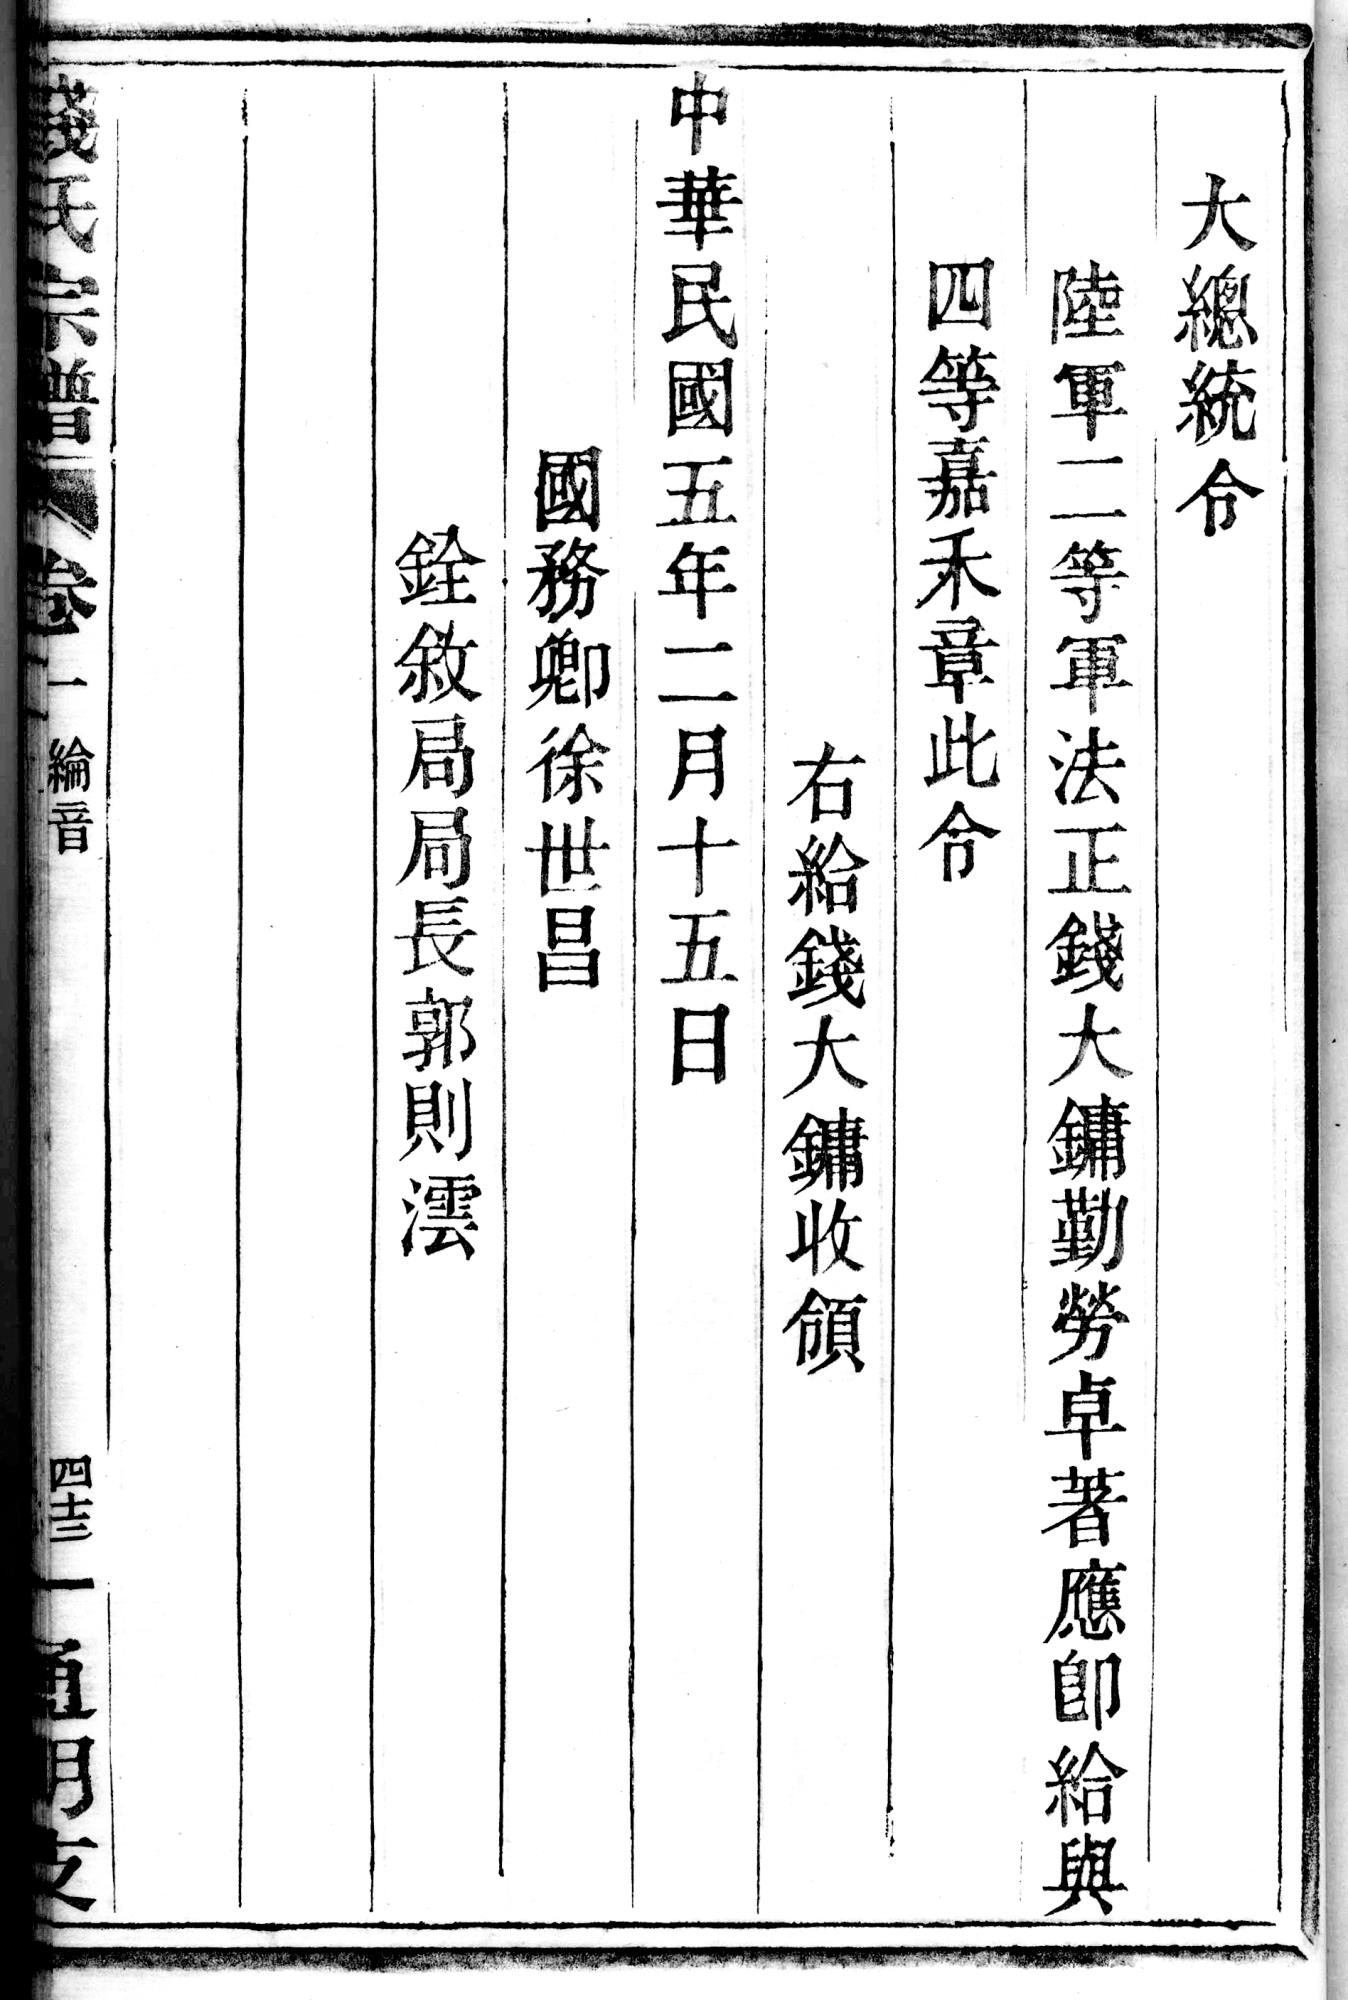 大總統令
陸軍二等軍法正錢大鏞勤勞卓著應卽給與
四等嘉禾章此令
右給錢大鏞收領
中華民國五年二月十五日
國務卿徐世昌
銓敘局局長郭則澐
錢氏宗譜 卷一 綸音 四十三 通明支